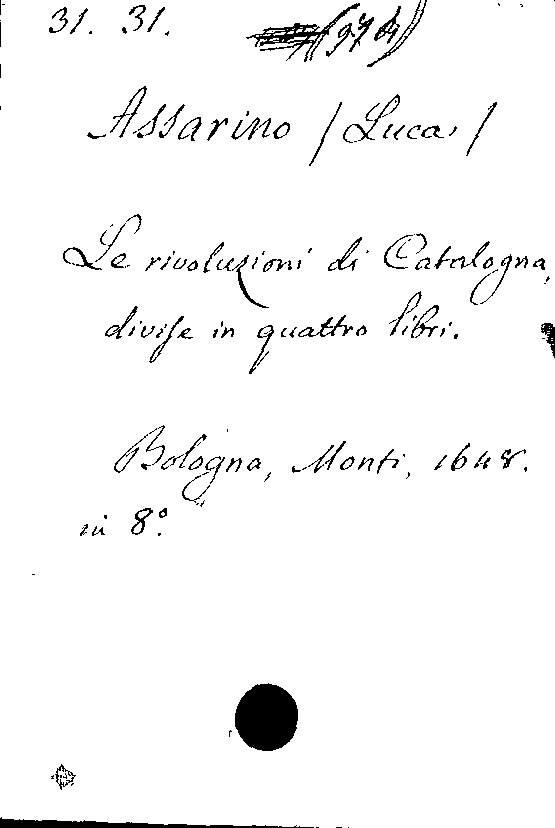 31. 31.
Assarino / Luca /
Le rivoluzioni di Catalogna,
divise in quattro libri.
Bologna, Monti, 1648.
in 8.º